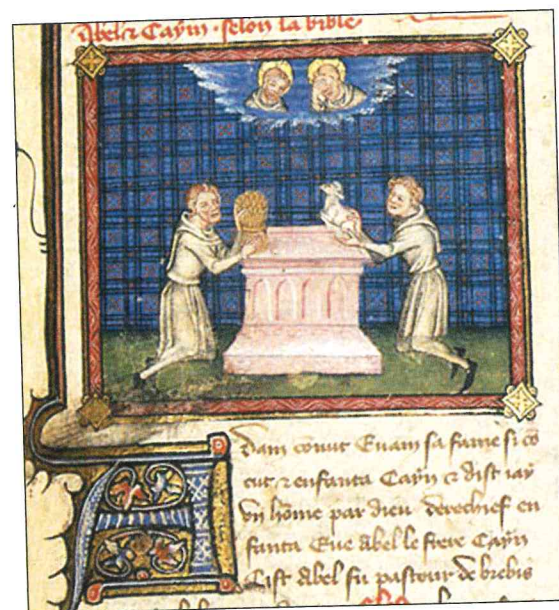 Abel et Cayin · selon la bible
Adam conut Evam sa fame si co
cut et enfanta Cayin et dist jay
un home par dieu derechief en
fanta Eve Abel le frere Cayin
Cist Abel fu pastour de brebis